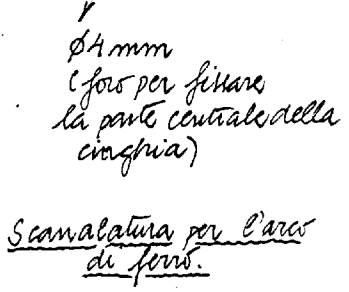 ø4mm
(foro per fissare
la parte centrale della
cinghia)
Scanalatura per l'arco
di ferro.